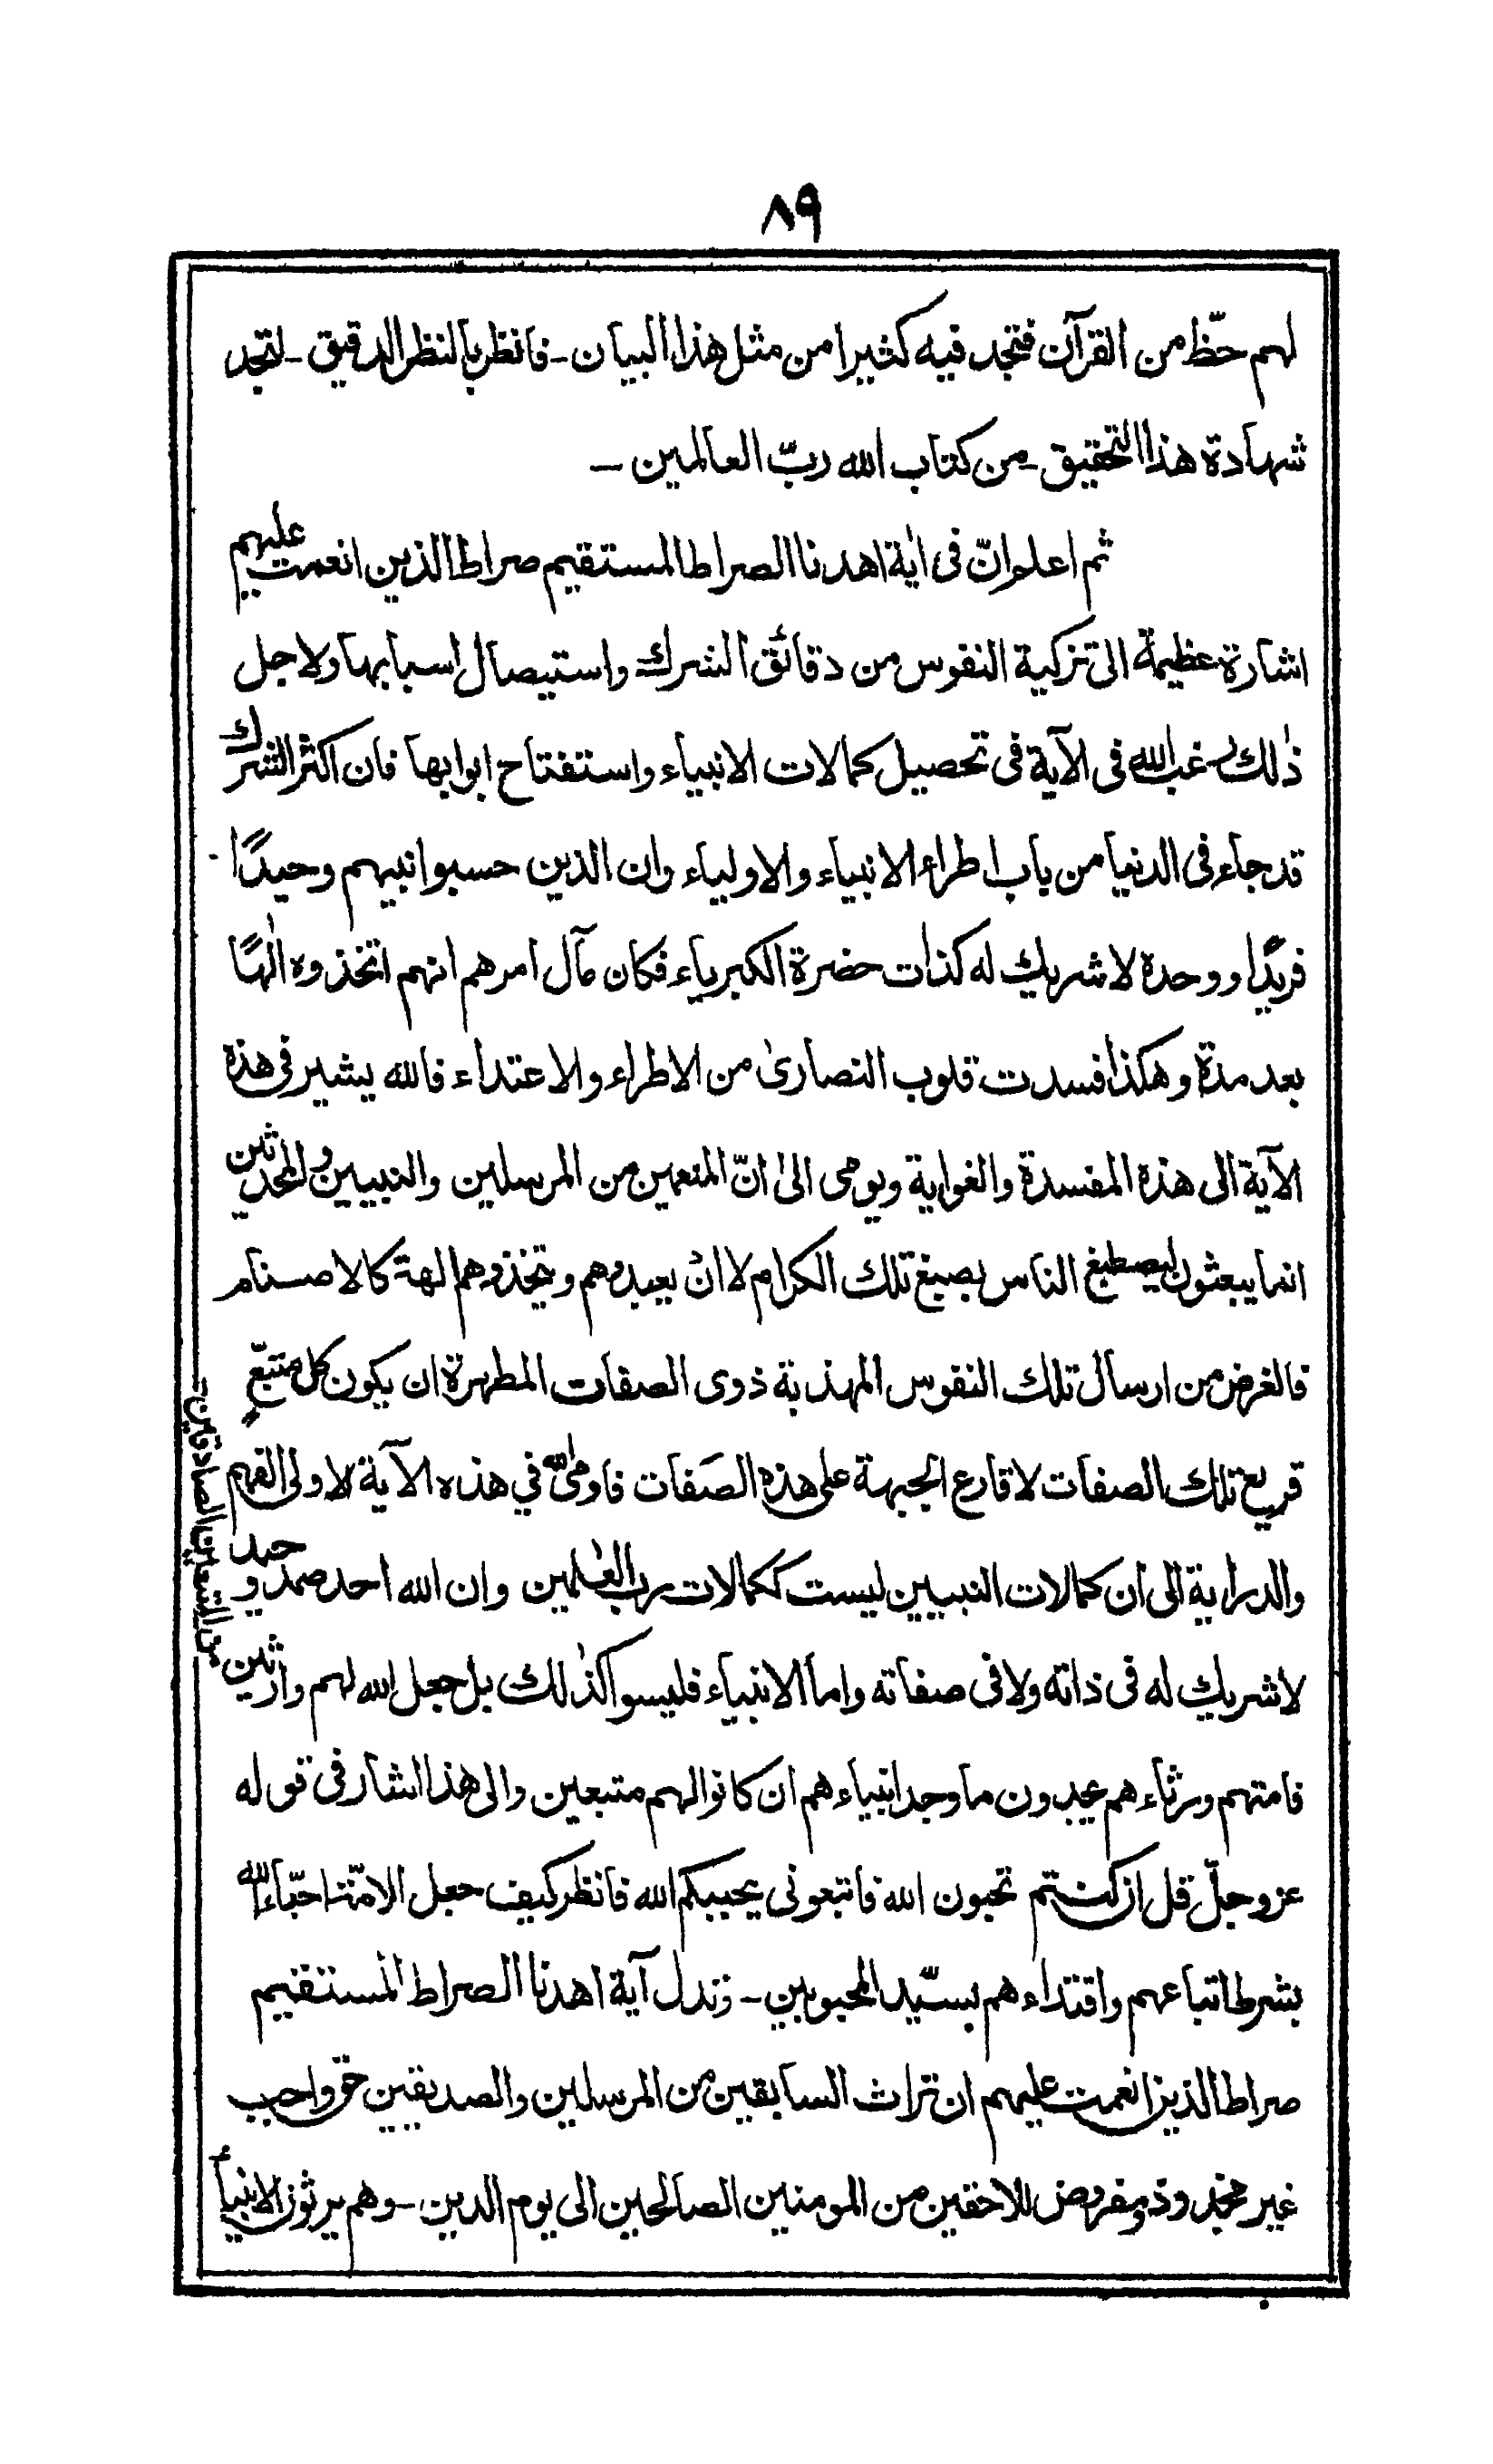 ٨٩
لهم حظّ من القرآن فتجد فيه كثيرا من مثل هذا البيان - فانظر بالنظر الدقيق - لتجد
شهادة هذا التحقيق - من كتاب الله ربّ العالمين -
ثم اعلم انّ فى اٰية اهدنا الصراط المستقيم صراط الذين انعمت عليهم
اشارة عظيمة الى تزكية النفوس من دقائق الشرك واستيصال اسبابها ولاجل
ذٰلك رغب الله فى الآية فى تحصيل كمالات الانبياء واستفتاح ابوابها فان اكثر الشرك
قد جاء فى الدنيا من باب اطراء الانبياء والاولياء وان الذين حسبوا نبيهم وحيدًا
فريدًا ووحده لا شريك له كذات حضرة الكبرياء فكان مآل امرهم انهم اتخذوه الٰهًا
بعد مدة وهكذا فسدت قلوب النصارىٰ من الاطراء والاعتداء فالله يشير فى هذه
الآية الى هذه المفسدة والغواية ويومى الىٰ انّ المنعمين من المرسلين والنبيين والمحدثين
انما يبعثون ليصطبغ الناس بصبغ تلك الكرام لا انْ يعبدوهم ويتخذوهم الهة كالاصنام
فالغرض من ارسال تلك النفوس المهذبة ذوى الصفات المطهرة ان يكون كل متبّعٍ
قريع تلك الصفات لا قارع الجبهة على هذه الصَفات فاومٰى فى هذه الآية لاولى الفهم
والدراية الى ان كمالات النبيين ليست ككمالات رب العٰلمين وان الله احد صمد وحيد
لا شريك له فى ذاته ولا فى صفاته واما الانبياء فليسوا كذٰلك بل جعل الله لهم وارثين
من المتبعين الصادقين
فامتهم ورثاءهم يجدون ما وجد انبياءهم ان كانوا لهم متبعين والى هذا اشار فى قوله
عز وجلّ قل ان كنتم تحبون الله فاتبعونى يحببكم الله فانظر كيف جعل الامّة احبّاء الله
بشرط اتباعهم واقتداءهم بسيّد المحبوبين - وتدل آية اهدنا الصراط المستقيم
صراط الذين انعمت عليهم ان تراث السابقين من المرسلين والصديقين حق واجب
غير مجذوذ ومفروض للاحقين من المومنين الصالحين الى يوم الدين - وهم يرثون الانبياء